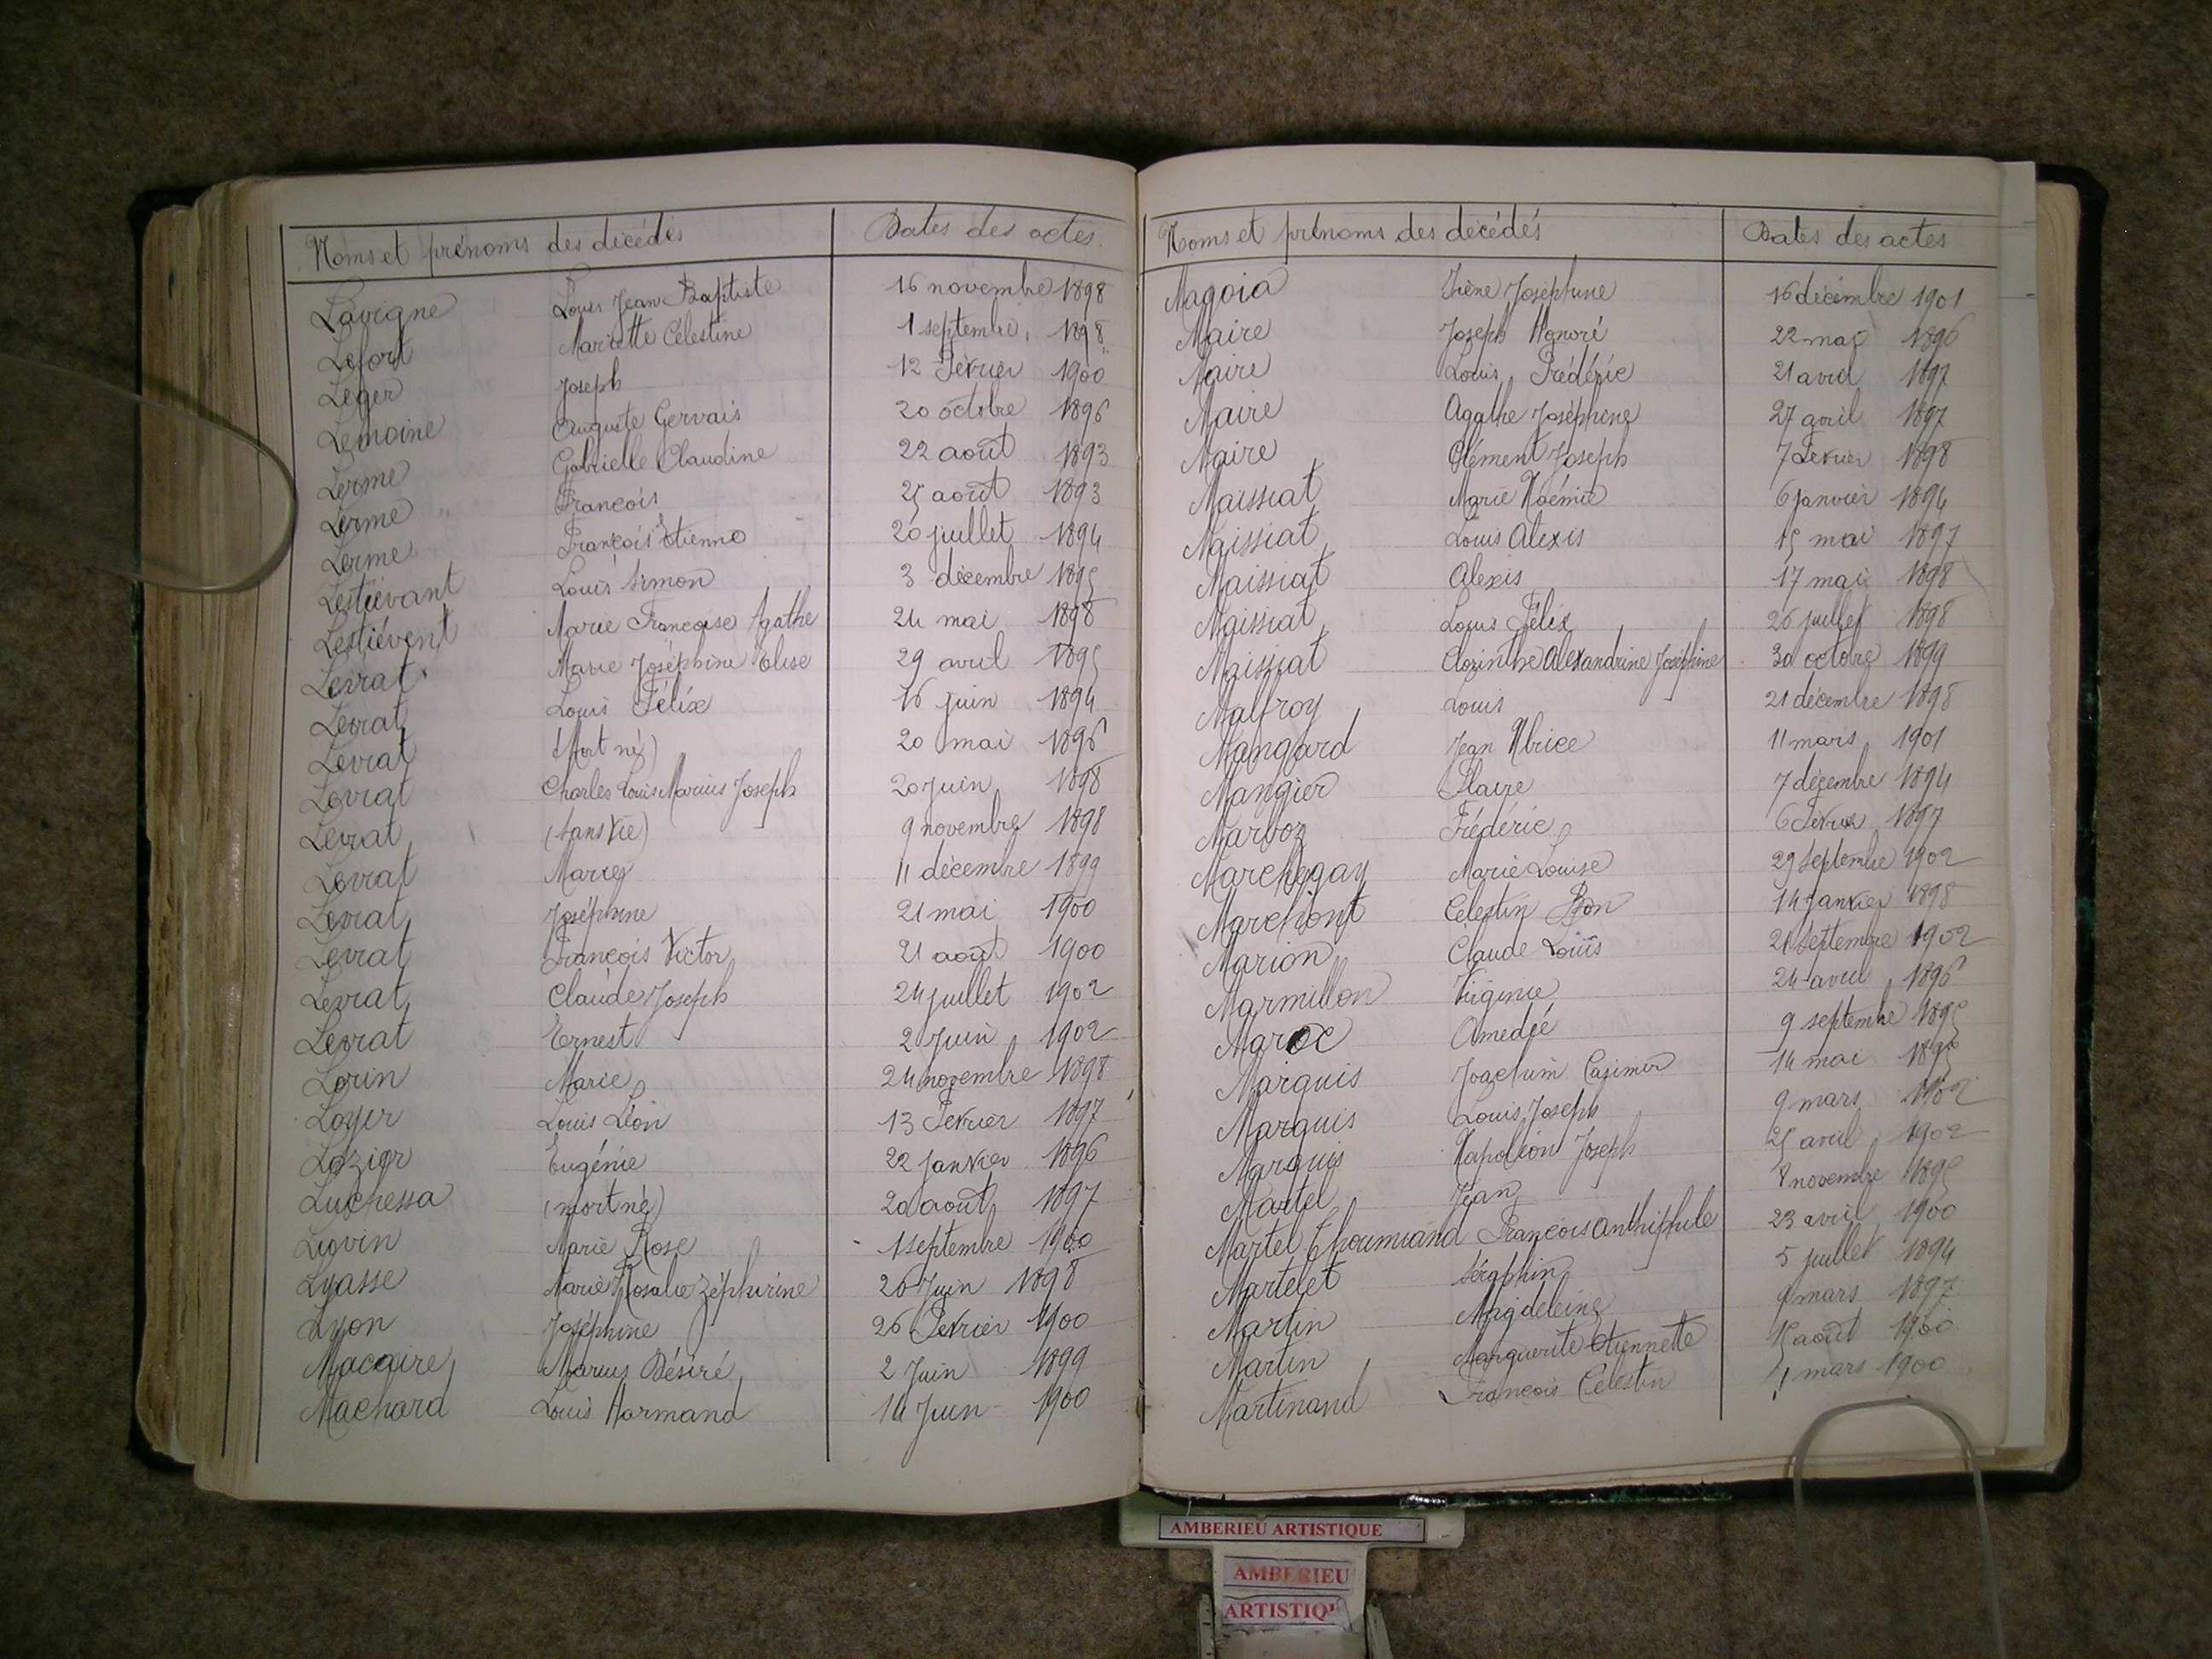 Noms et prénoms des décédés Dates des actes
Lavigne Louis Jean Baptiste 16 novembre 1898
Lefort Mariette Célestine 1 septembre 1898
Léger Joseph 12 Février 1900
Lemoine Auguste Gervais 20 octobre 1896
Lerme Gabrielle Claudine 22 août 1893
Lerme François 25 août 1893
Lerme François Etienne 20 juillet 1894
Lestiévant Louis Simon 3 décembre 1895
Lestiévent Marie Françoise Agathe 24 mai 1898
Levrat Marie Joséphine Elise 29 avril 1895
Levrat Louis Félix 16 juin 1894
Levrat (Mort né) 20 mai 1896
Levrat Charles Louis Marius Joseph 20 Juin 1898
Levrat (Sans vie) 9 novembre 1898
Levrat Marie 11 décembre 1899
Levrat Joséphine 21 mai 1900
Levrat François Victor 21 août 1900
Levrat Claude Joseph 24 juillet 1902
Levrat Ernest 2 Juin 1902
Lorin Marie 24 novembre 1898
Loyer Louis Léon 13 Février 1897
Lozier Eugénie 22 janvier 1896
Luchessa (mort né) 20 août 1897
Luvin Marie Rose 1 septembre 1900
Lyasse Marie Rosalie Zéphirine 26 Juin 1898
Lyon Joséphine 26 Février 1900
Macaire Marius Désiré 2 Juin 1899
Machard Louis Harmand 14 Juin 1900
Noms et prénoms des décédés Dates des actes
Magoia Irène Joséphine 16 décembre 1901
Maire Joseph Honoré 22 mai 1896
Maire Louis Frédéric 21 avril 1897
Maire Agathe Joséphine 27 avril 1897
Maire Clément Joseph 7 Février 1898
Maissiat Marie Noémie 6 janvier 1894
Maissiat Louis Alexis 15 mai 1897
Maissiat Alexis 17 mai 1898
Maissiat Louis Félix 26 juillet 1898
Maissiat Alexandrine Joséphine 30 octobre 1899
Malfroy Louis 21 décembre 1898
Mangard Jean 11 mars 1901
Mangier Claire 7 décembre 1894
Marboz Frédéric 6 Février 1897
Marchegay Marie Louise 29 septembre 1902
Marchont Célestin Bon 14 janvier 1898
Marion Claude Louis 21 septembre 1902
Marmillon Virginie 24 avril 1896
Maroc Amedée 9 septembre 1895
Marquis Joachim Casimir 14 mai
Marquis Louis Joseph 9 mars 1902
Marquis Napoléon Joseph 25 avril 1902
Martel Jean 8 novembre 1895
Martel Choumiand François Anthiphile 23 avril 1900
Martelet Séraphin 5 juillet 1894
Martin Magdeleine mars 1897
Martin Marguerite Etiennette 15 août 1900
Martinand François Célestin mars 1900
AMBERIEU ARTISTIQUE
AMBERIEU
ARTISTIQU